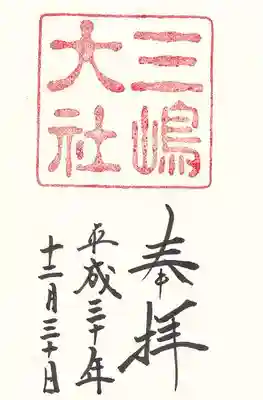 三嶋
大社
奉拝
平成三十年
十二月三十日